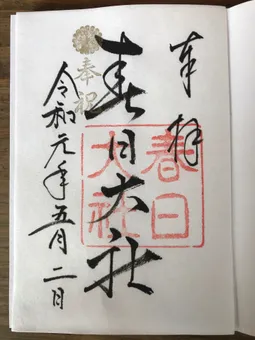 奉拝
春日大社
春日大社
奉祝
令和元年五月二日